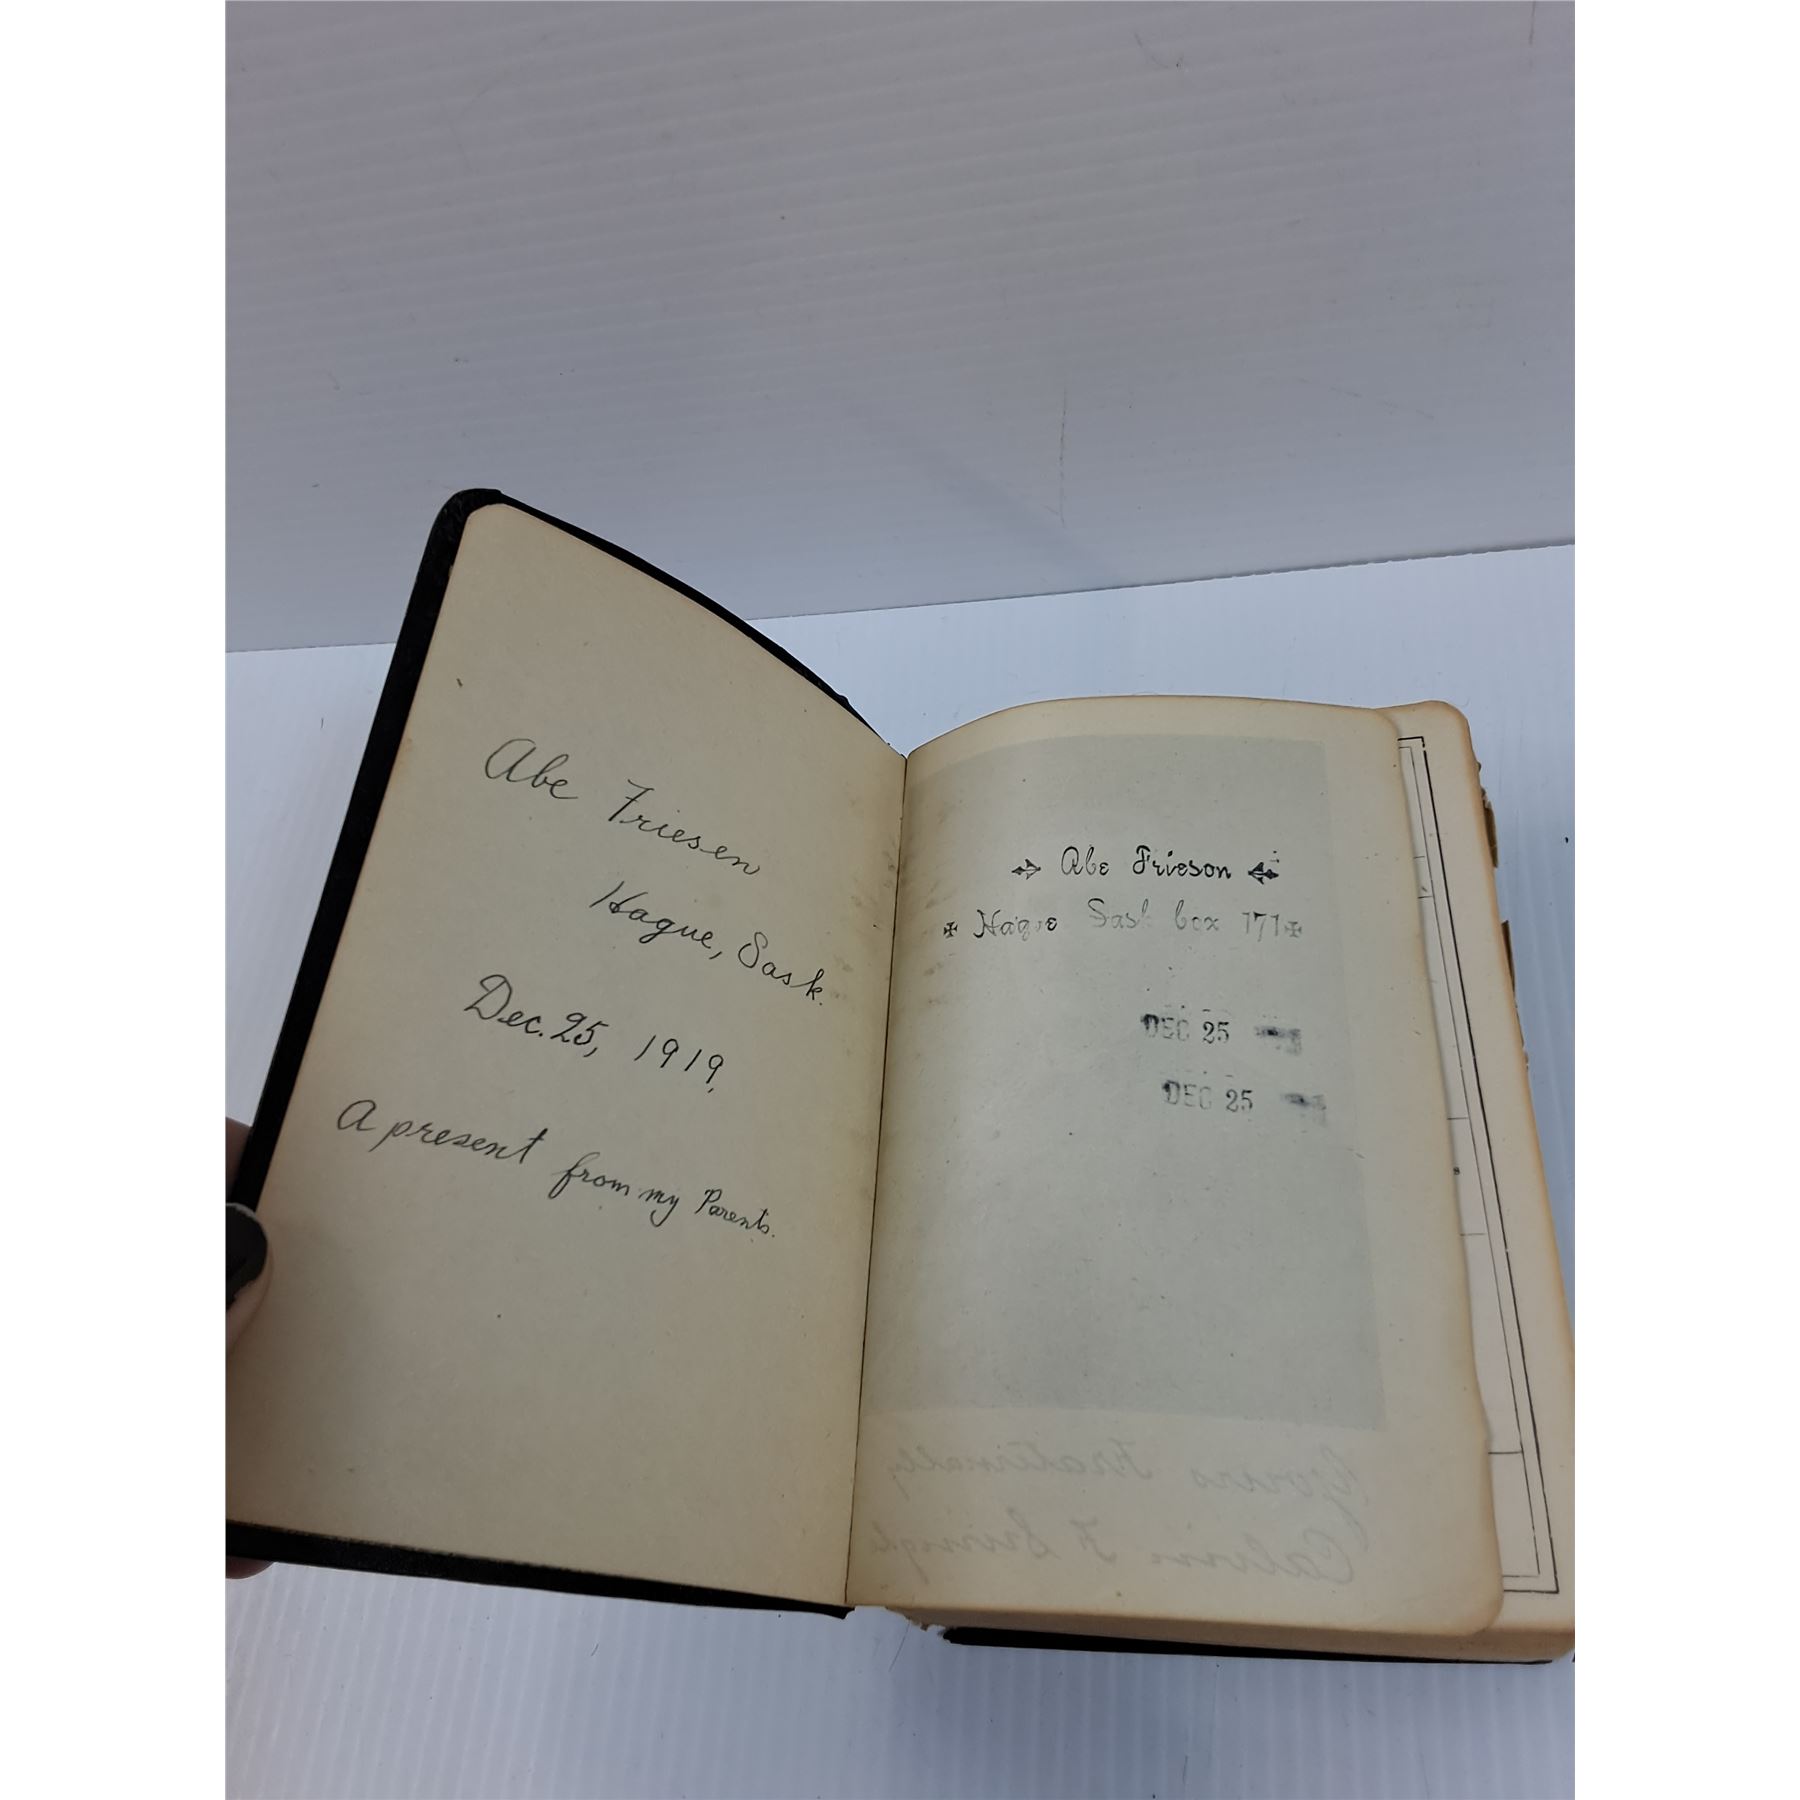 Abe Friesen
Hague, Sask.
Dec. 25, 1919,
A present from my Parents.
Abe Frieson
Hague Sask box 171
DEC 25
DEC 25
Yours Fraternally
Calvin F